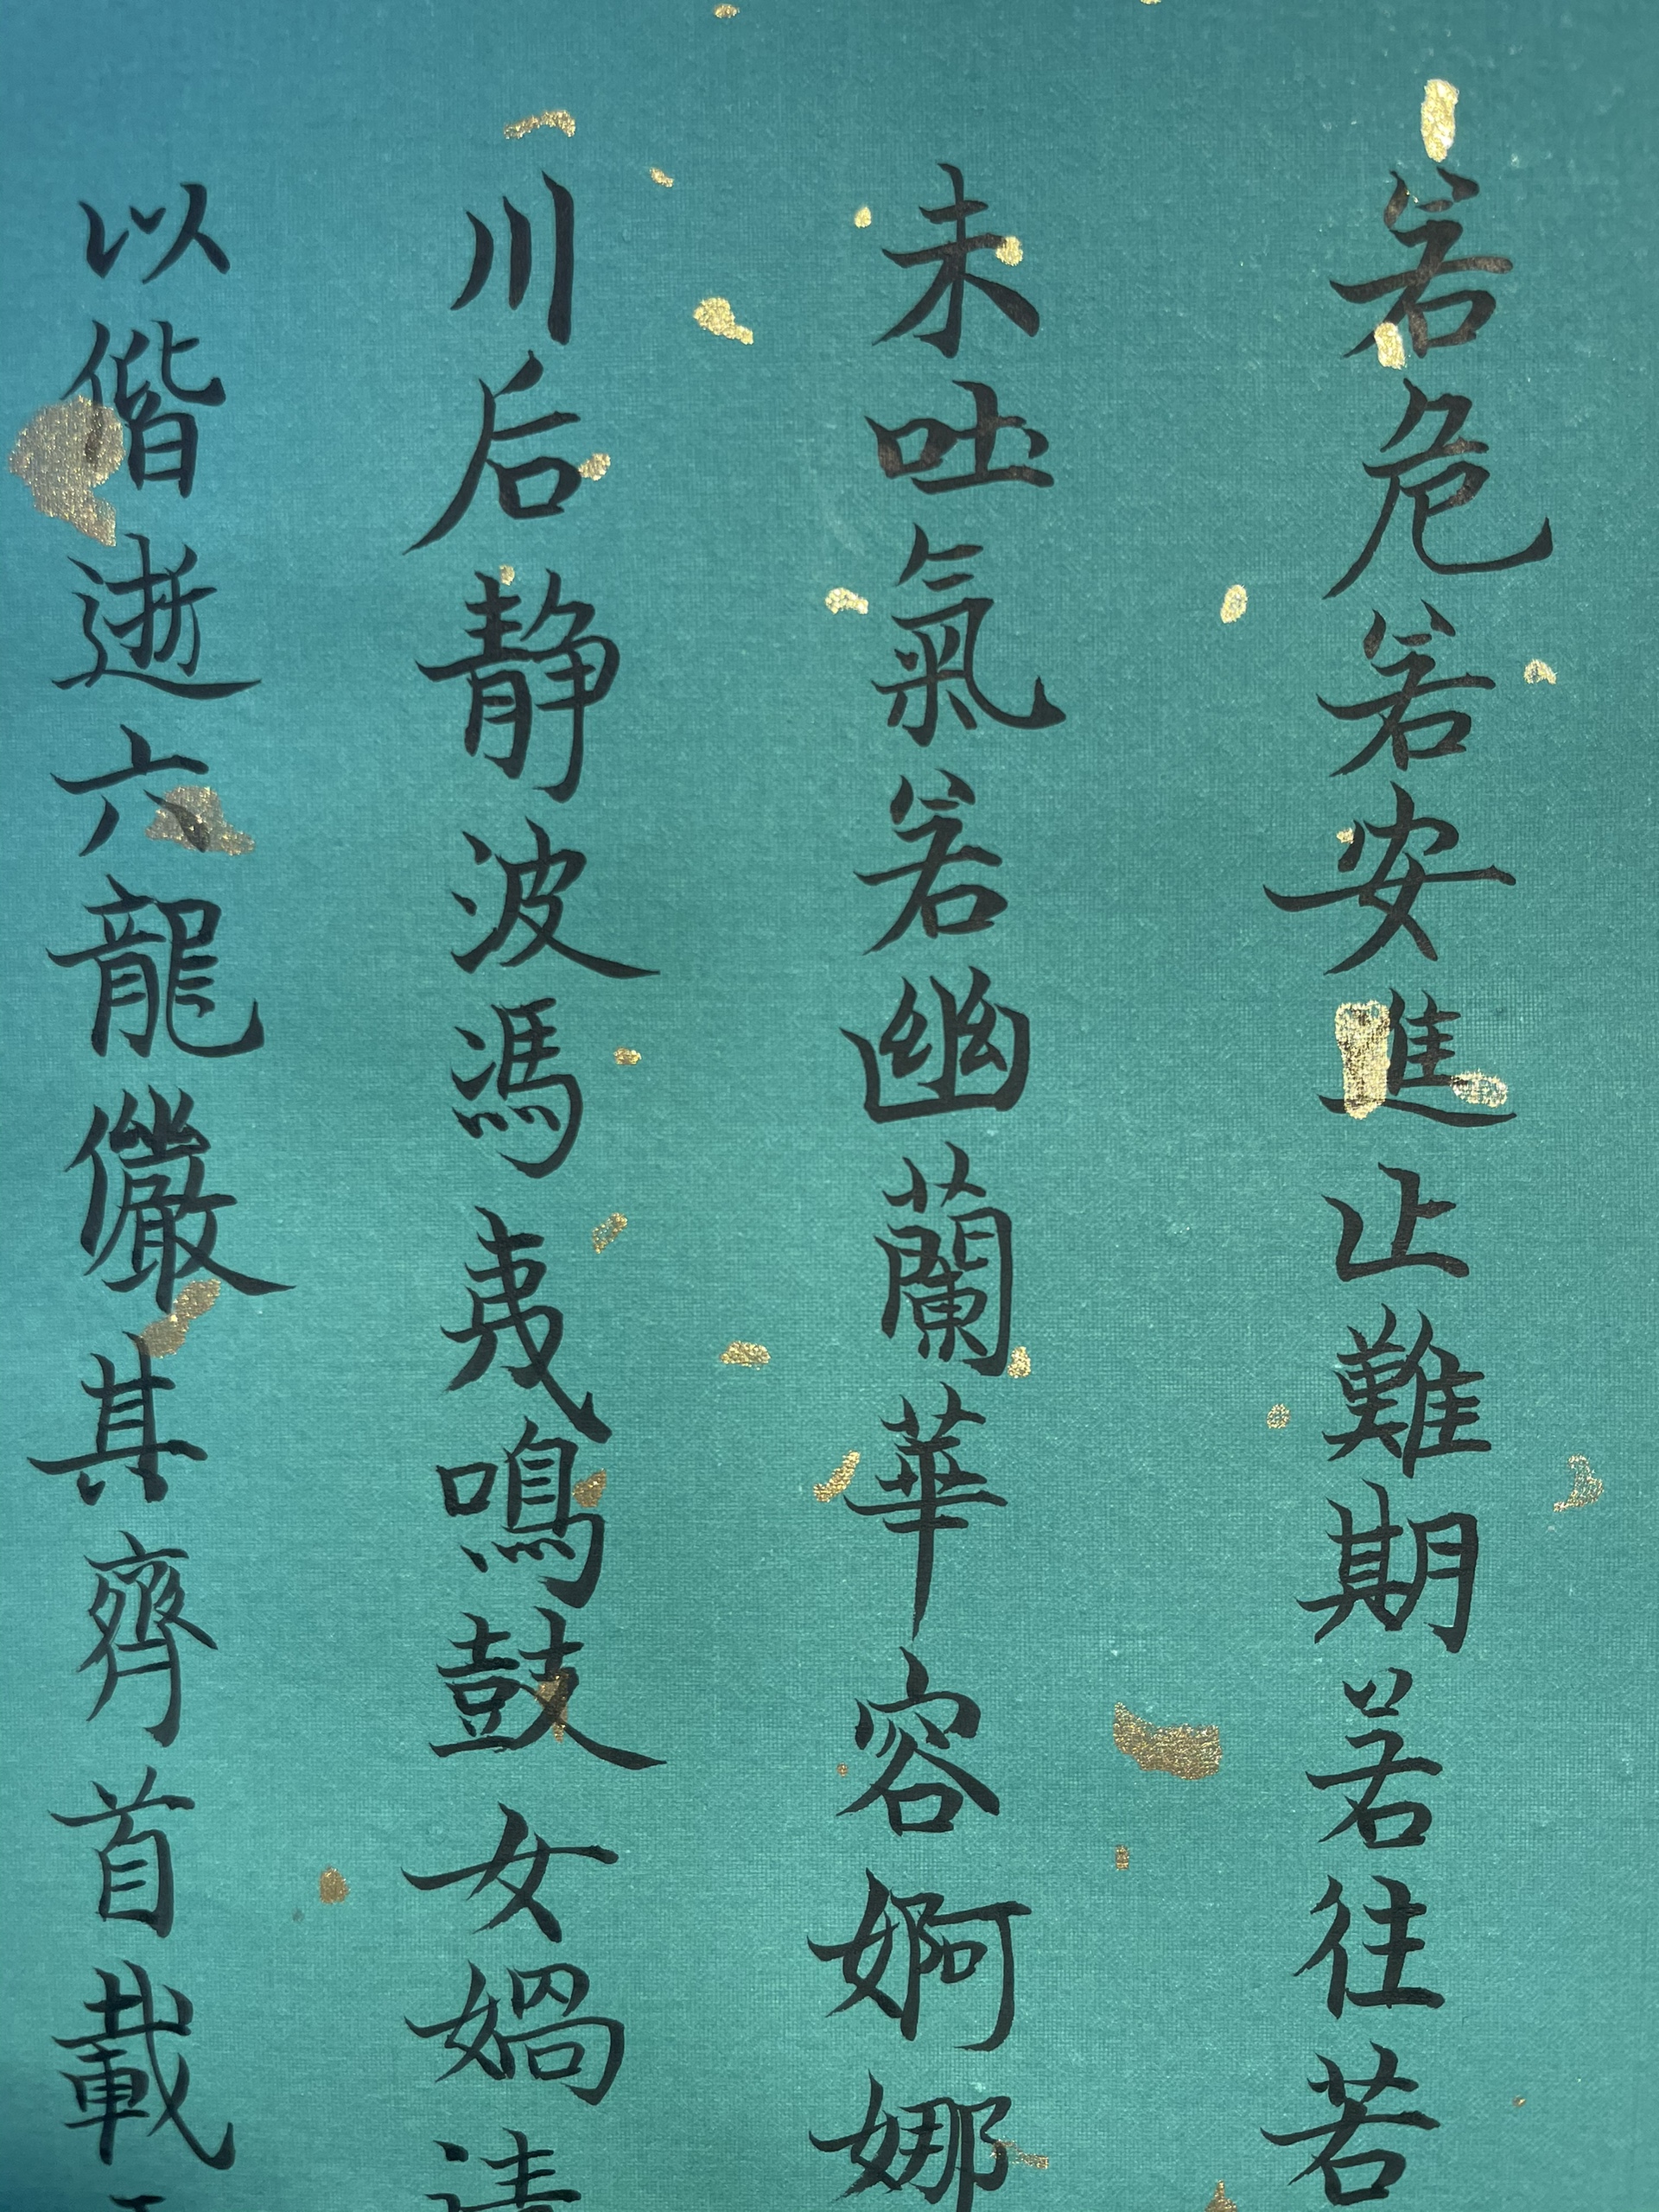 若危若安進止難期若往若
未吐氣若幽蘭華容婀娜
川后静波馮夷鳴鼓女媧清
以偕逝六龍儼其齊首載